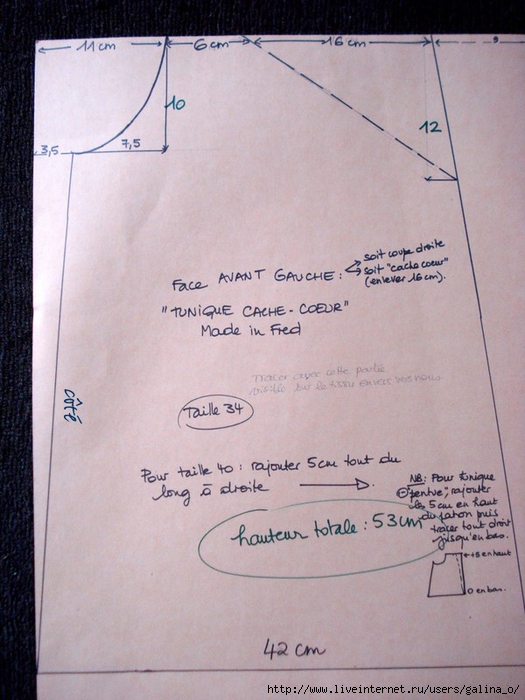 11 cm
6 cm
16 cm
10
12
3,5
7,5
Face AVANT GAUCHE :
soit coupe droite
soit "cache coeur"
(enlever 16 cm).
"TUNIQUE CACHE-COEUR"
Made in Fred
Tracer avec cette partie
côté
Taille 34
Pour taille 40 : rajouter 5cm tout du
long à droite
NB: Pour tunique
rajouter
les 5 cm en haut
du patron puis
tracer tout droit
jusqu'en bas.
hauteur totale : 53cm
+5 en haut
0 en bas.
42 cm
http://www.liveinternet.ru/users/galina_o/